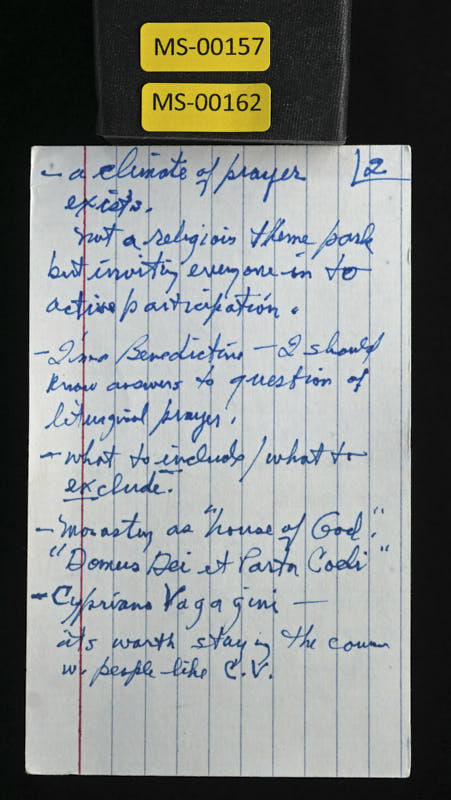 MS-00157
MS-00162
2
- a climate of prayer
exists.
not a religious theme park
but inviting everyone in to
active participation.
- I'm a Benedictine - I should
know answers to question of
liturgical prayer.
- what to include / what to
exclude.
- monastery as "house of God."
"Domus Dei et Porta Coeli"
- Cypriano Vagagini -
it's worth staying the course
w. people like C.V.